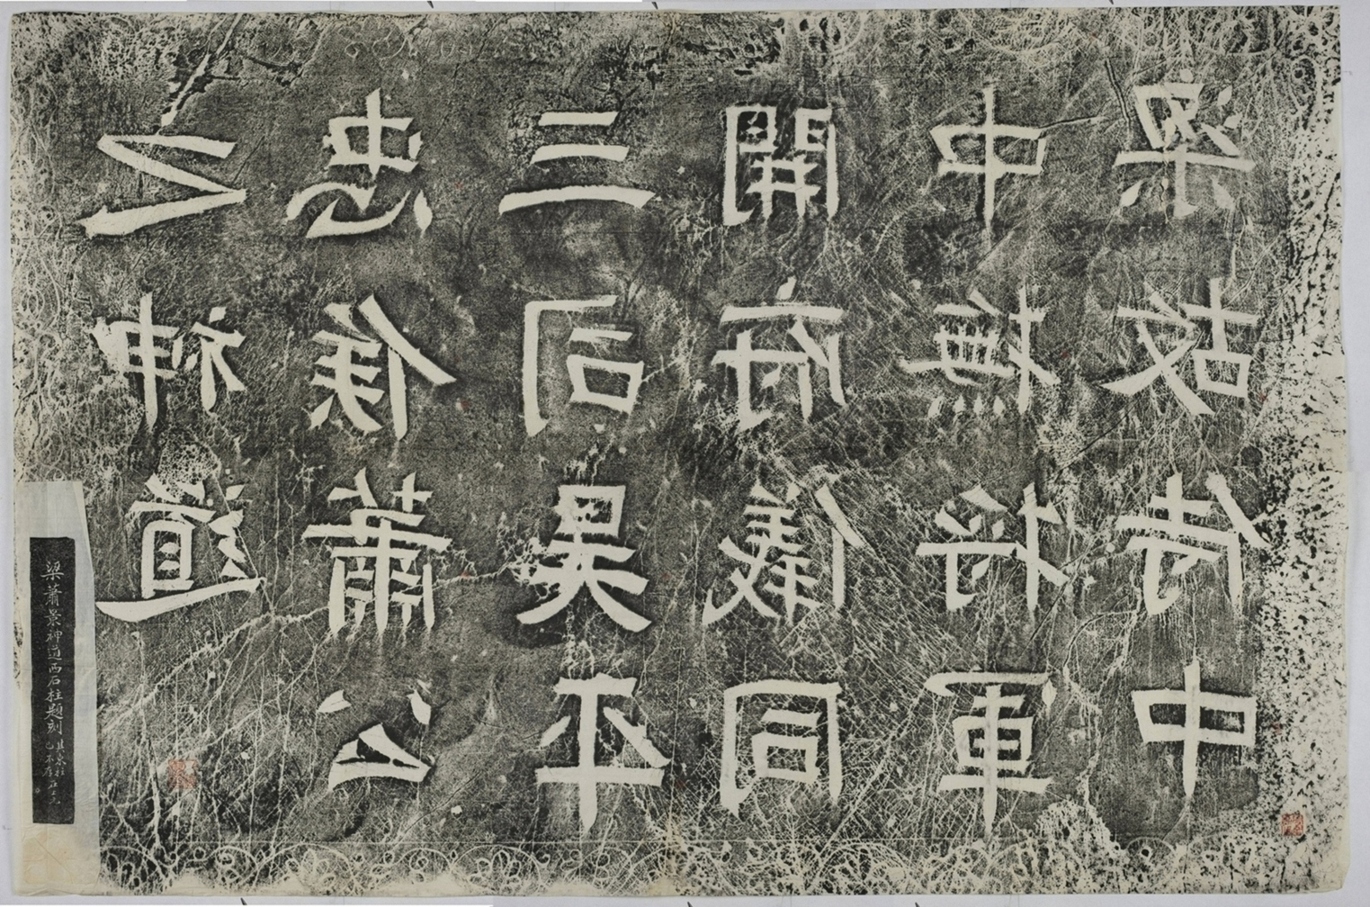 梁故侍中
中撫將軍
開府儀同
三司吳平
忠侯蕭公
之神道
梁蕭景神道西石柱題刻